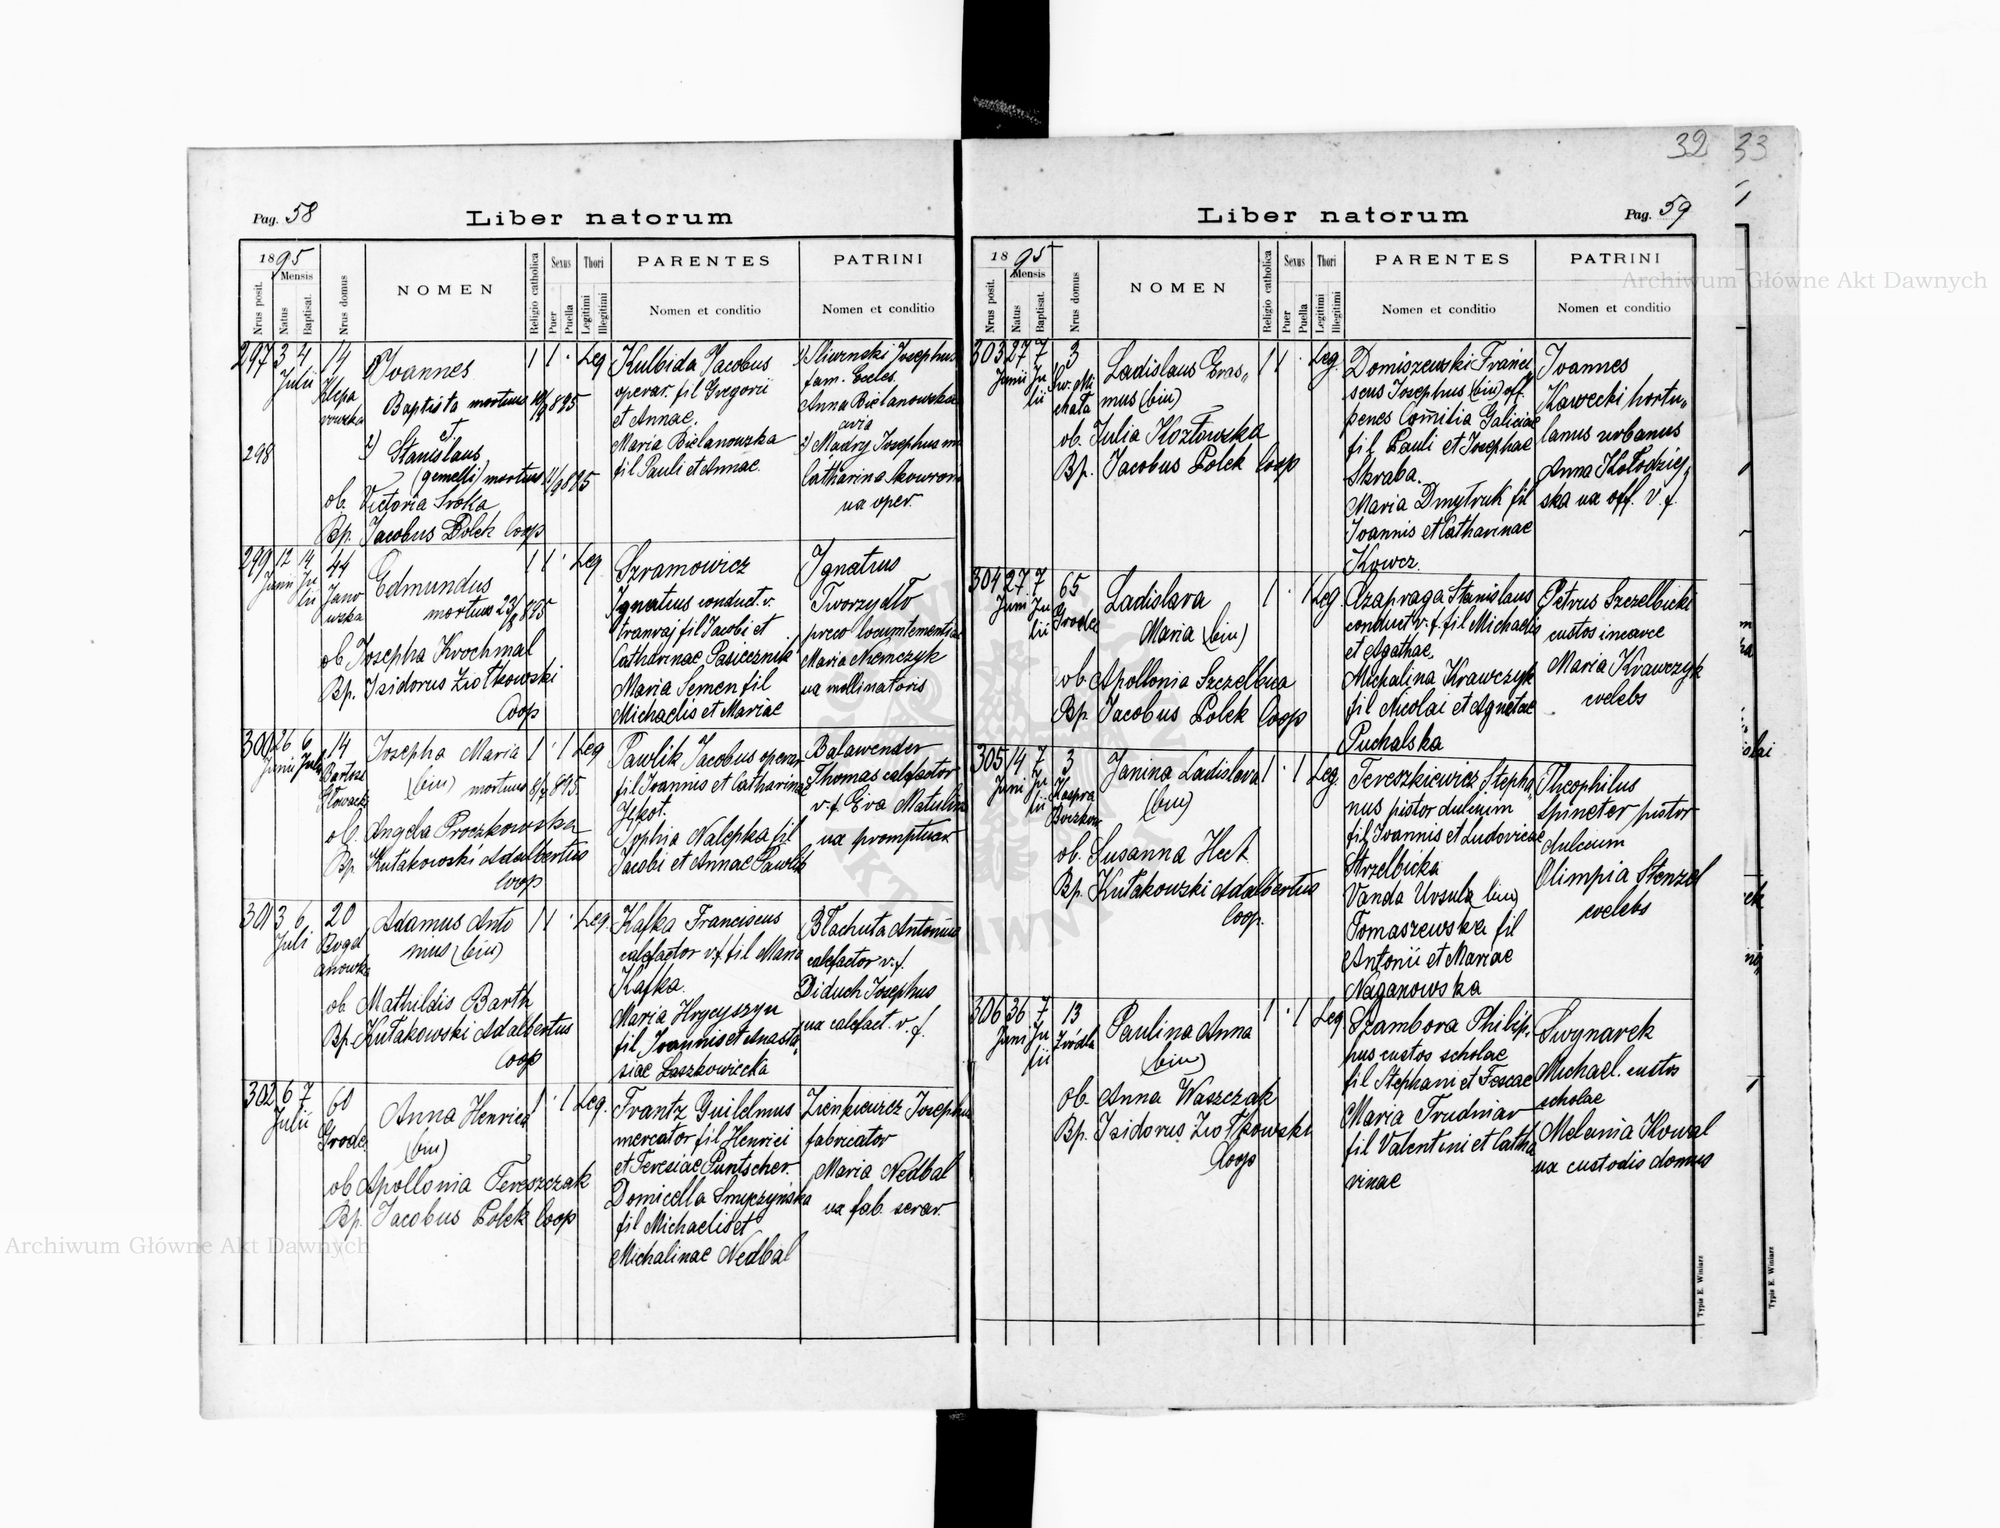 32 33
Pag. 58
Liber natorum
1895
Mensis
Nrus posit.
Natus
Baptisat.
Nrus domus
NOMEN
Religio catholica
Sexus
Puer
Puella
Thori
Legitimi
Illegitimi
PARENTES
Nomen et conditio
PATRINI
Nomen et conditio
297 3 4 Julii 14
1) Joannes
Baptista mortuus 895
et
298
2) Stanislaus
(gemelli) mortuus 895
ob. Victoria Sroka
Bp. Jacobus Polek Coop
1 1 · Leg
Kulbida Jacobus
operar. fil Gregorii
et Annae,
Maria Bielanowska
fil Pauli et Annae.
1) Sliwinski Josephus
fam. Eccles.
Anna Bielanowska
2) Madry Josephus
Catharina Skowron
ux oper.
299 12 Junii 14 Julii 44
Janowska
Edmundus
mortuus 23/8 895
ob Josepha Krochmal
Bp. Isidorus Ziołkowski
Coop
1 1 · Leg
Szramowicz
Ignatius conduct. v.
tranvaj fil Jacobi et
Catharinae Pasiecznik
Maria Semen fil
Michaelis et Mariae
Ignatius
Tworzydło
Maria Niemczyk
ux mollinatoris
300 26 Junii 6 Julii 14
Josepha Maria
(bin) mortuus 895
ob. Angela Proczkowska
Bp. Kułakowski Adalbertus
Coop
1 · 1 Leg
Pawlik Jacobus operar
fil Joannis et Catharinae
Zykot.
Sophia Nalepka fil
Jacobi et Annae Pawlik
Balawender
Thomas calefactor
v. f. Eva
ux promptuar
301 3 6 Juli 20
Bogdanowka
Adamus Anto
nius (bin)
ob Mathildis Barth
Bp Kułakowski Adalbertus
Coop
1 1 · Leg.
Kafka Franciscus
calefactor v. f. fil Maria
Kafka.
Maria Hrycyszyn
fil Joannis et Anasta
siae Laszkowiecka
Błachuta Antonius
calefactor v. f.
Diduch Josephus
ux calefact. v. f.
302 6 7 Julii 60
Grodec
Anna Henrica
(bin)
ob Apollonia Tereszczak
Bp. Jacobus Polek Coop
1 · 1 Leg.
Frantz Guilelmus
mercator fil Henrici
et Teresiae Puntscher.
Domicella Smyczyńska
fil Michaelis et
Michalinae Nedbal
Zienkiewicz Josephus
fabricator
Maria Nedbal
ux fab. serar.
Liber natorum
Pag. 59
1895
Mensis
Nrus posit.
Natus
Baptisat.
Nrus domus
NOMEN
Religio catholica
Sexus
Puer
Puella
Thori
Legitimi
Illegitimi
PARENTES
Nomen et conditio
PATRINI
Nomen et conditio
303 27 Junii 7 Julii 3
Sw. Michała
Ladislaus Eras„
mus (bin)
ob. Julia Kozłowska
Bp. Jacobus Polek Coop
1 1 · Leg.
Domiszewski Franci
scus Josephus (bin) off.
penes Comitia Galiciae
fil Pauli et Josephae
Skraba.
Maria Dmytruk fil
Joannis et Catharinae
Kowcz.
Joannes
Kawecki hortu„
lanus urbanus
Anna Kołodziej„
ska ux off. v. f.
304 27 Juni 7 Julii 65
Grodec
Ladislava
Maria (bin)
ob Apollonia Szczelbina
Bp Jacobus Polek Coop
1 · 1 Leg.
Czapraga Stanislaus
conduct v. f. fil Michaelis
et Agathae,
Michalina Krawczyk
fil Nicolai et Agnetae
Puchalska
Petrus Szczelbicki
custos incarce
Maria Krawczyk
coelebs
305 14 Juni 7 Julii 3
Janina Ladislava
(bin)
ob. Susanna Hech
Bp. Kułakowski Adalbertus
Coop.
1 · 1 Leg.
Tereszkiewicz Stepha„
nus pistor dulcium
fil Joannis et Ludovicae
Strzelbicka
Vanda Ursula (bin)
Tomaszewska fil
Antonii et Mariae
Naganowska
Theophilus
Spineter pistor
dulceum
Olimpia Stenzel
coelebs
306 36 Juni 7 Julii 13
Źródla
Paulina Anna
(bin)
ob. Anna Waszczak
Bp. Isidorus Ziołkowski
Coop
1 · 1 Leg
Szambora Philip„
pus custos scholae
fil Stephani et Tescae
Maria Trudniar
fil Valentini et Catha
rinae
Swynarek
Michael. custos
scholae
Melania Kowal
ux custodis domus
Typis E. Winiarz
Typis E. Winiarz
Archiwum Główne Akt Dawnych
Archiwum Główne Akt Dawnych